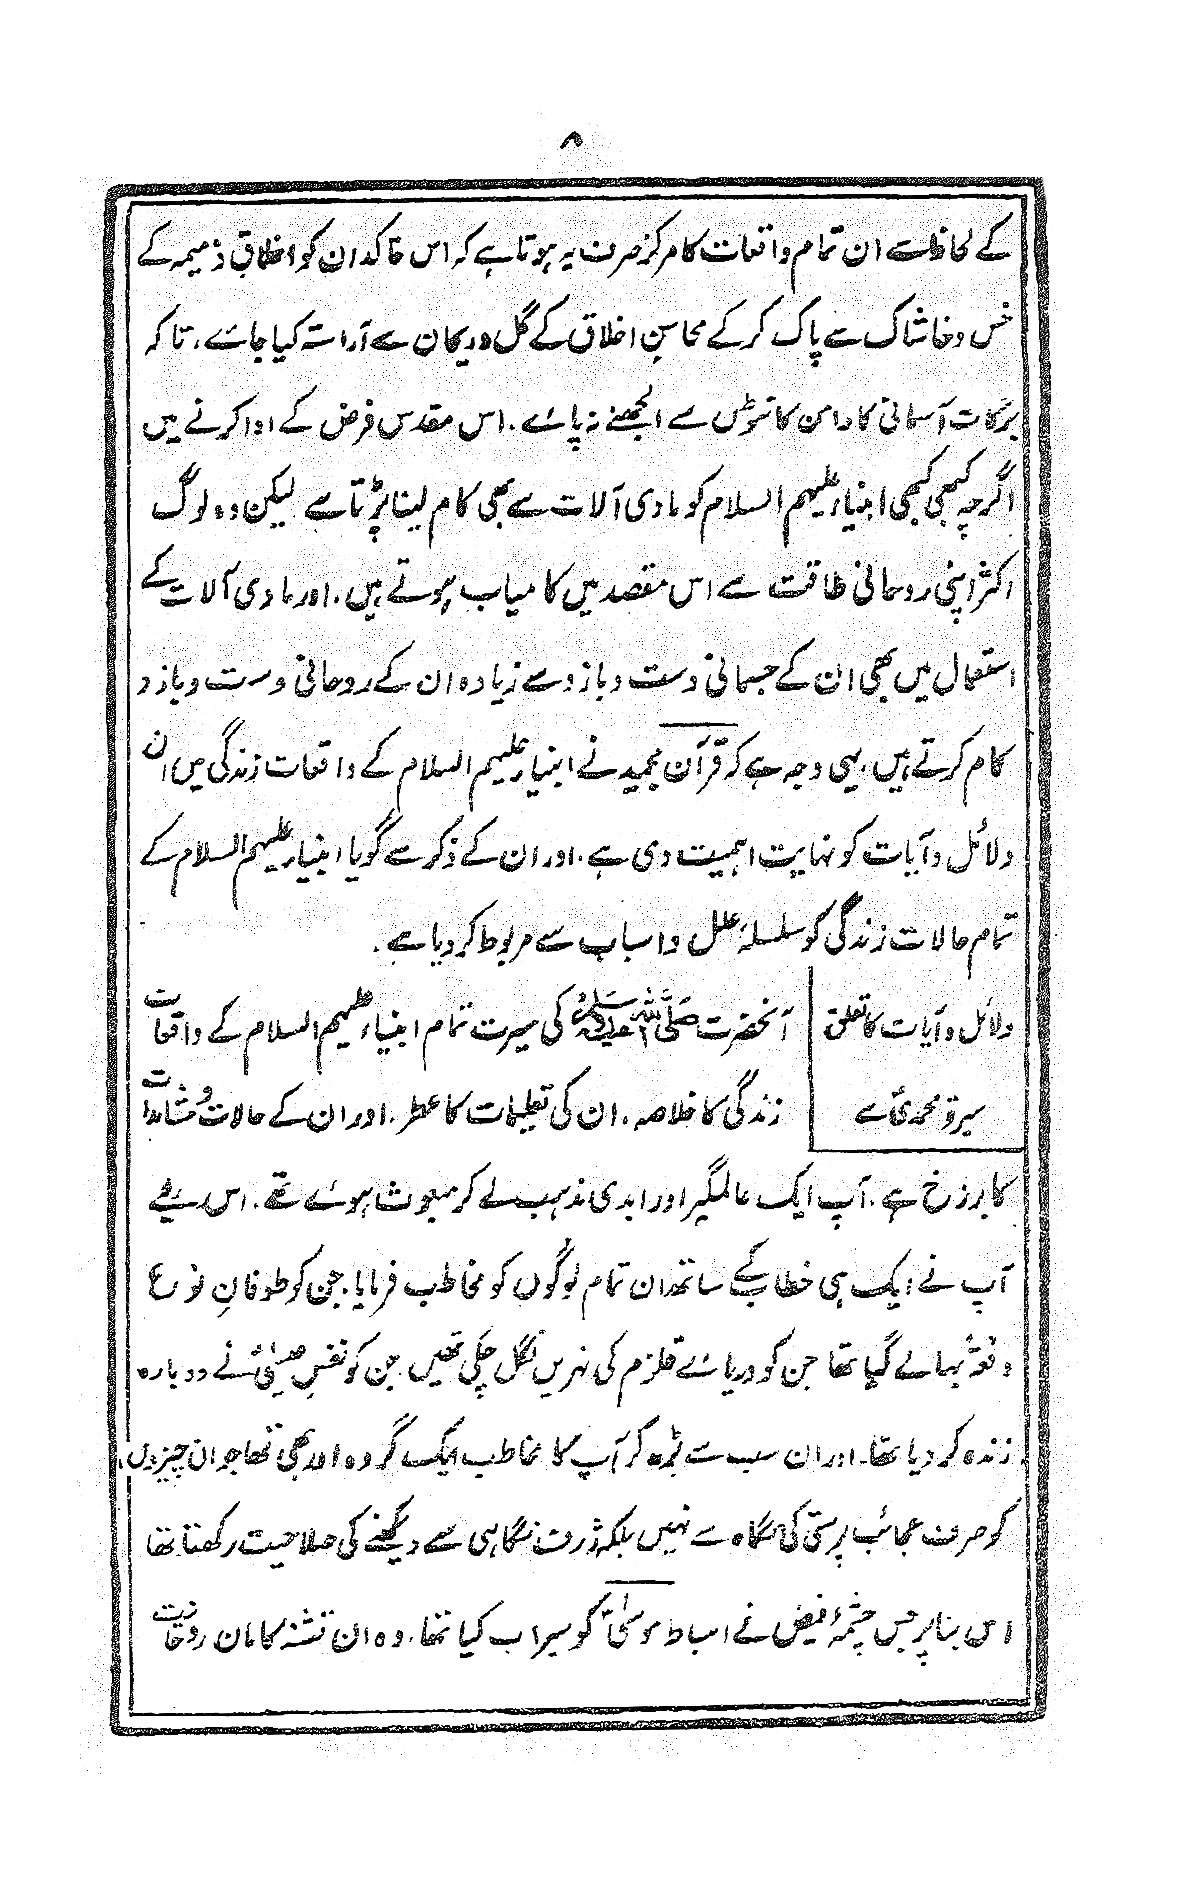 ۸
کے لحاظ سے ان تمام واقعات کا مرکز صرف یہ ہوتا ہے کہ اس خاکدان کو اخلاقِ ذمیمہ کے
خس وخاشاک سے پاک کر کے محاسنِ اخلاق کے گل و ریحان سے آراستہ کیا جائے، تاکہ
برکات آسمانی کا دامن کانٹوں سے الجھنے نہ پائے۔ اس مقدس فرض کے ادا کرنے میں
اگرچہ کبھی کبھی انبیاء علیہم السلام کو مادی آلات سے بھی کام لینا پڑتا ہے لیکن وہ لوگ
اکثر اپنی روحانی طاقت سے اس مقصد میں کامیاب ہوتے ہیں، اور مادی آلات کے
استعمال میں بھی ان کے جسمانی دست و بازو سے زیادہ ان کے روحانی دست و بازو
کام کرتے ہیں، یہی وجہ ہے کہ قرآن مجید نے انبیاء علیہم السلام کے واقعات زندگی میں ان
دلائل و آیات کو نہایت اہمیت دی ہے، اور ان کے ذکر سے گویا انبیاء علیہم السلام کے
تمام حالات زندگی کو سلسلۂ علل و اسباب سے مربوط کر دیا ہے۔
دلائل و آیات کا تعلق
سیرۃ محمدیؐ سے
آنحضرت صلی اللہ علیہ وسلم کی سیرت تمام انبیاء علیہم السلام کے واقعات
زندگی کا خلاصہ، ان کی تعلیمات کا عطر، اور ان کے حالات و مشاہدات
کا برزخ ہے، آپ ایک عالمگیر اور ابدی مذہب لے کر مبعوث ہوئے تھے، اس لیے
آپ نے ایک ہی خطاب کے ساتھ ان تمام لوگوں کو مخاطب فرمایا، جن کو طوفانِ نوحؑ
دفعۃً بہا لے گیا تھا جن کو دریائے قلزم کی نہریں نگل چکی تھیں جن کو نفسِ عیسیٰؑ نے دوبارہ
زندہ کر دیا تھا۔ اور ان سب سے بڑھ کر آپ کا مخاطب ایک گروہ اور بھی تھا جو ان چیزوں
کو صرف عجائب پرستی کی نگاہ سے نہیں بلکہ ژرف نگاہی سے دیکھنے کی صلاحیت رکھتا تھا
اس بنا پر جس چشمۂ فیض نے اسباط موسیٰؑ کو سیراب کیا تھا، وہ ان تشنہ کامان روحانیت